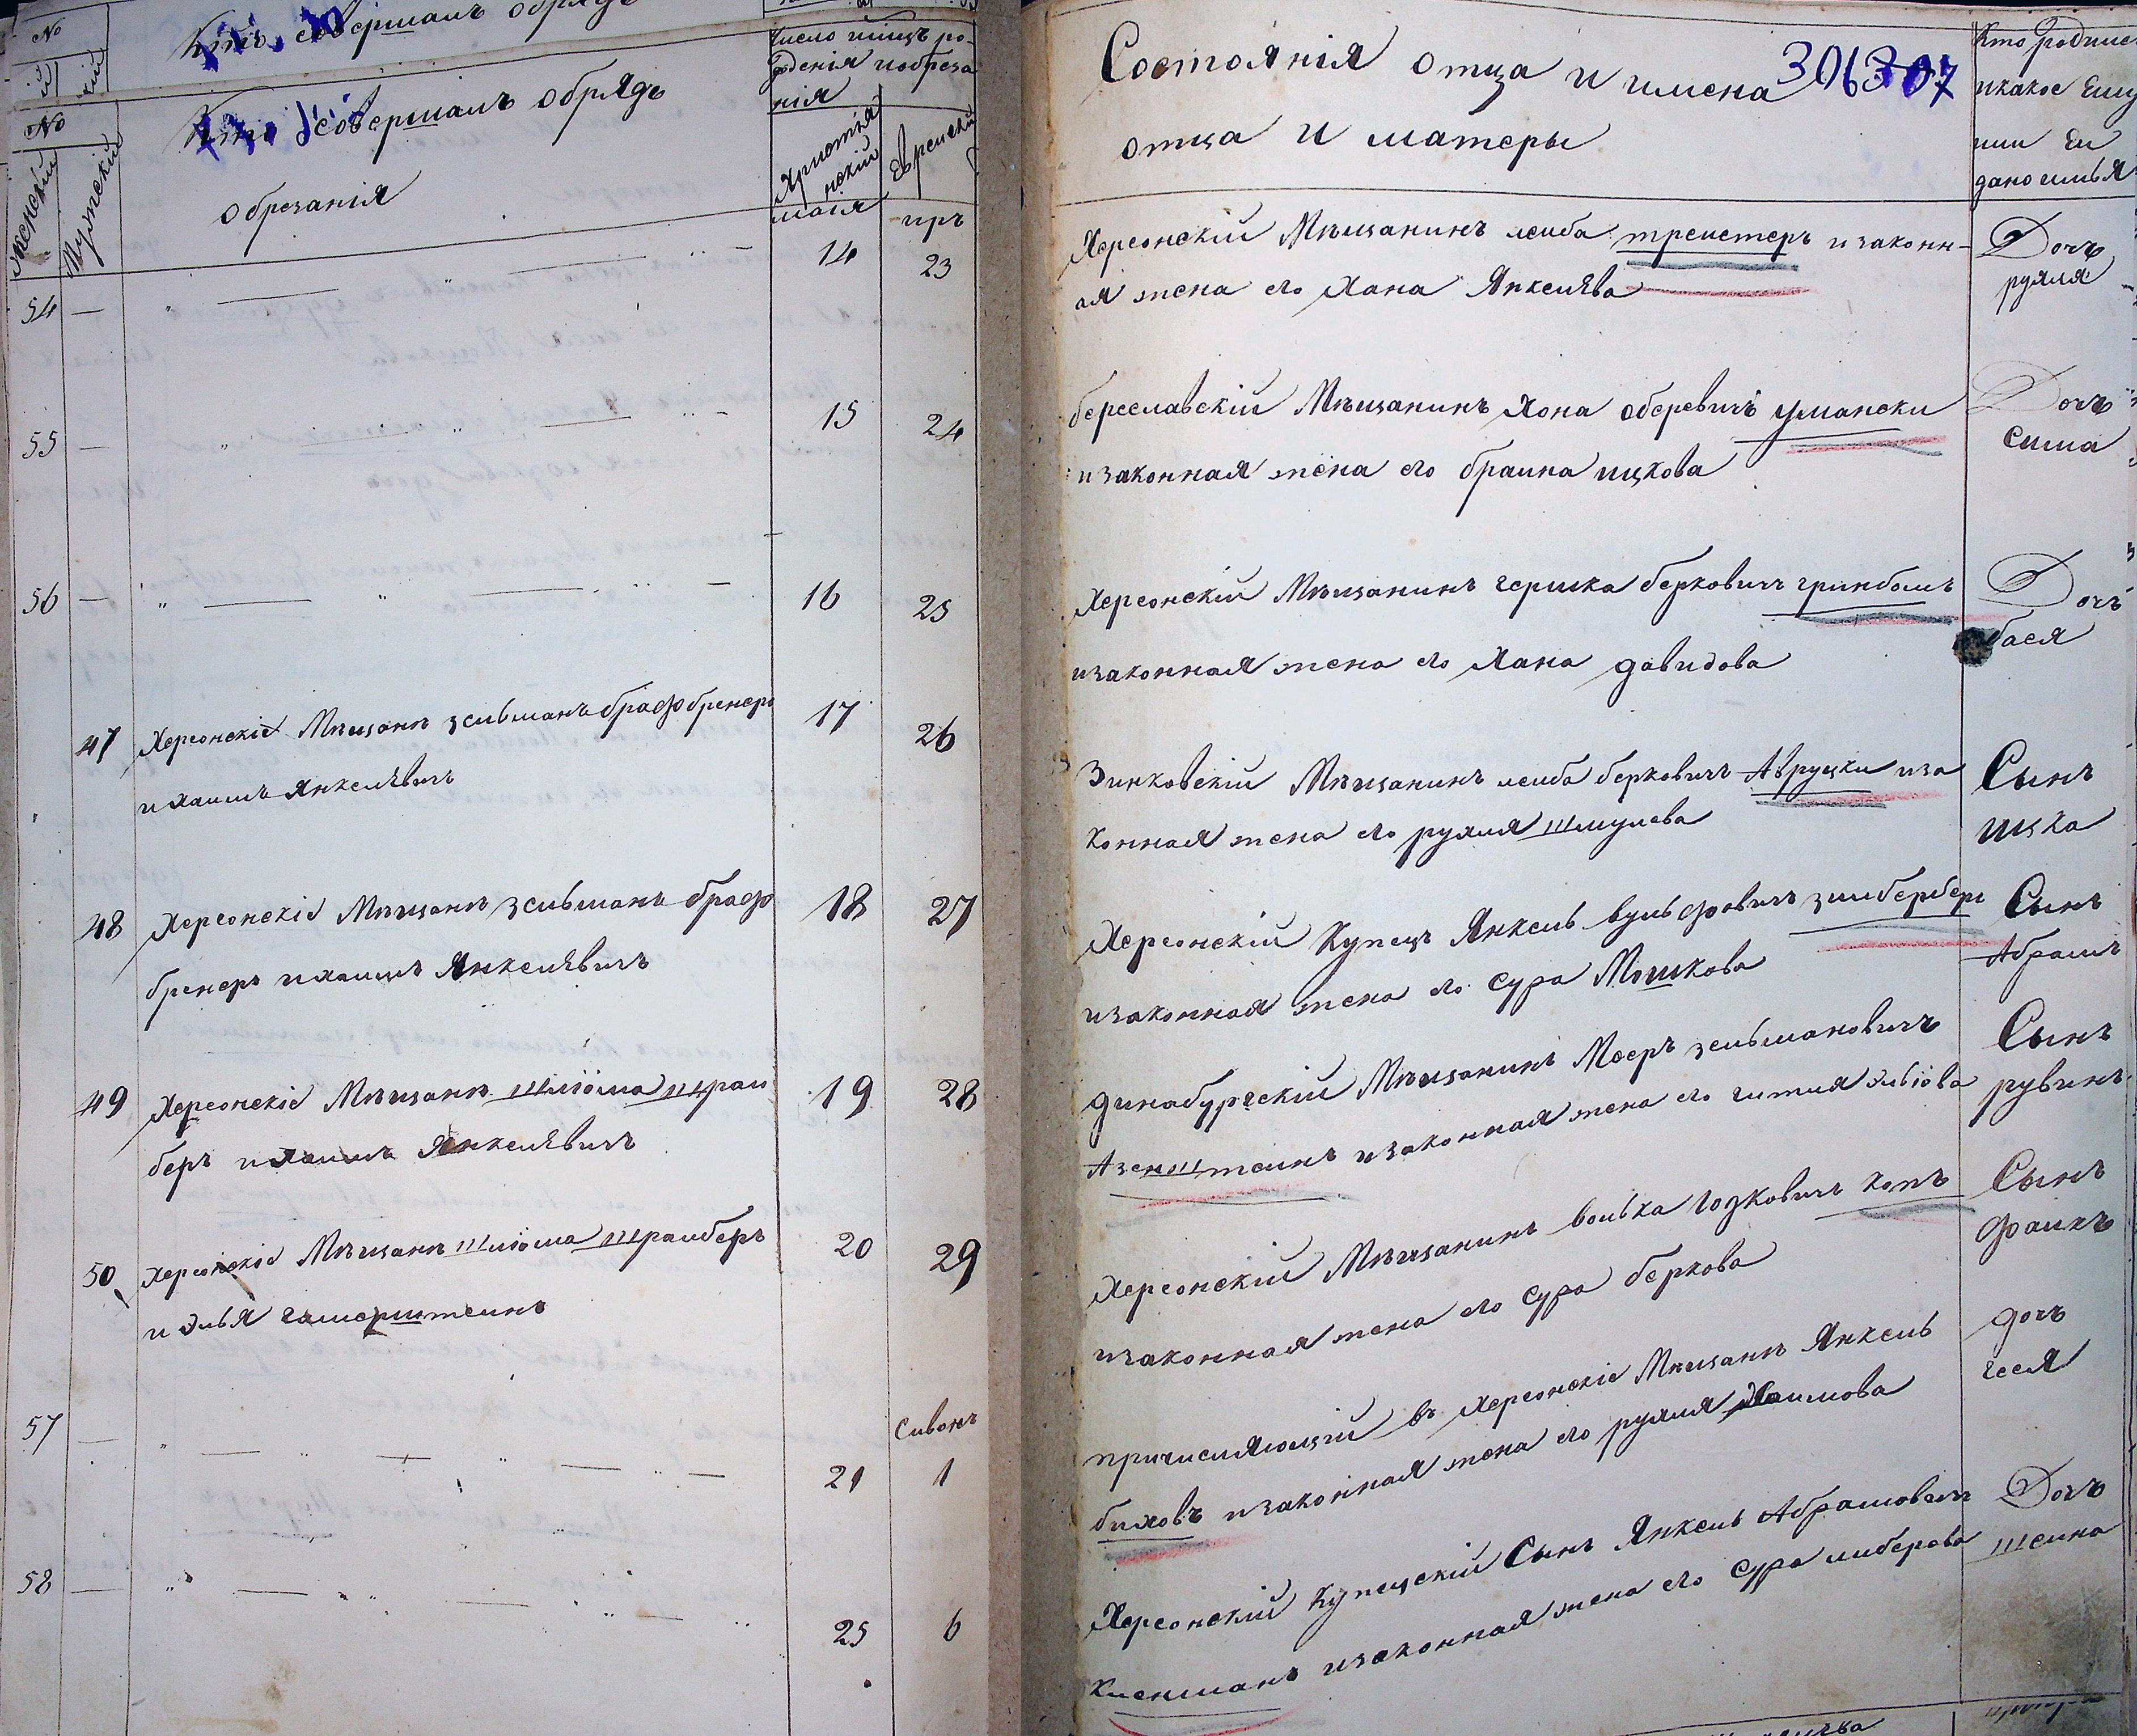 Кто совершалъ обрядъ
№
Кто совершалъ обрядъ
обрезанія
женскій
Мужескій
Число мцъ ро-
жденія иобреза
нія
Христіа
нскій
Еврейскій
маія
иръ
54 — " — " — 14 23
55 — " — " — 15 24
56 — " — " — 16 25
47 Херсонскіе Мѣщане зельманъ браф бренеръ 17 26
и хаимъ Янкелѣвичъ
48 Херсонскіе Мѣщане зельманъ браф 18 27
бренеръ и хаимъ Янкелѣвичъ
49 Херсонскіе Мѣщане шліома шраи 19 28
беръ и хаимъ Янкелѣвичъ
50 Херсонскіе Мѣщане шліома шраиберъ 20 29
и Элья гамерштеинъ
Сивонъ
57 — " — " — 21 1
58 — " — " — 25 6
Состоянія отца и имена 306 307
отца и матеры
Кто родилс
икакое Ему
или Ей
дано имья
Херсонскій Мѣщанинъ леиба треистеръ и законн-
ая жена его Хана Янкелѣва
Дочъ
рухля
береславскій Мѣщанинъ Хона оберевичъ умански
и законная жена его браина ицкова
Дочъ
сима
Херсонскій Мѣщанинъ гершка берковичъ гринбомъ
изаконная жена его Хана давидова
Дочъ
бася
Зинковскій Мѣщанинъ леиба берковичъ Авруцки иза
конная жена его рухля шмулева
Сынъ
ицка
Херсонскій Купецъ Янкель вульфовичъ зильбербергъ
изаконная жена его сура Мошкова
Сынъ
Абрамъ
динабургскій Мѣщанинъ Моеръ зельмановичъ
Азенштеинъ изаконная жена его гитля эльіова
Сынъ
рувинъ
Херсонскій Мѣщанинъ волька Юдковичъ копъ
изаконная жена его сура беркова
Сынъ
фаикъ
причисляющій въ Херсонскіе Мѣщане Янкель
биховъ изаконная жена его рухля Хаимова
дочъ
геся
Херсонскій Купецскій Сынъ Янкель Абрамович
Клеинманъ изаконная жена его сура либерова
Дочъ
шеина